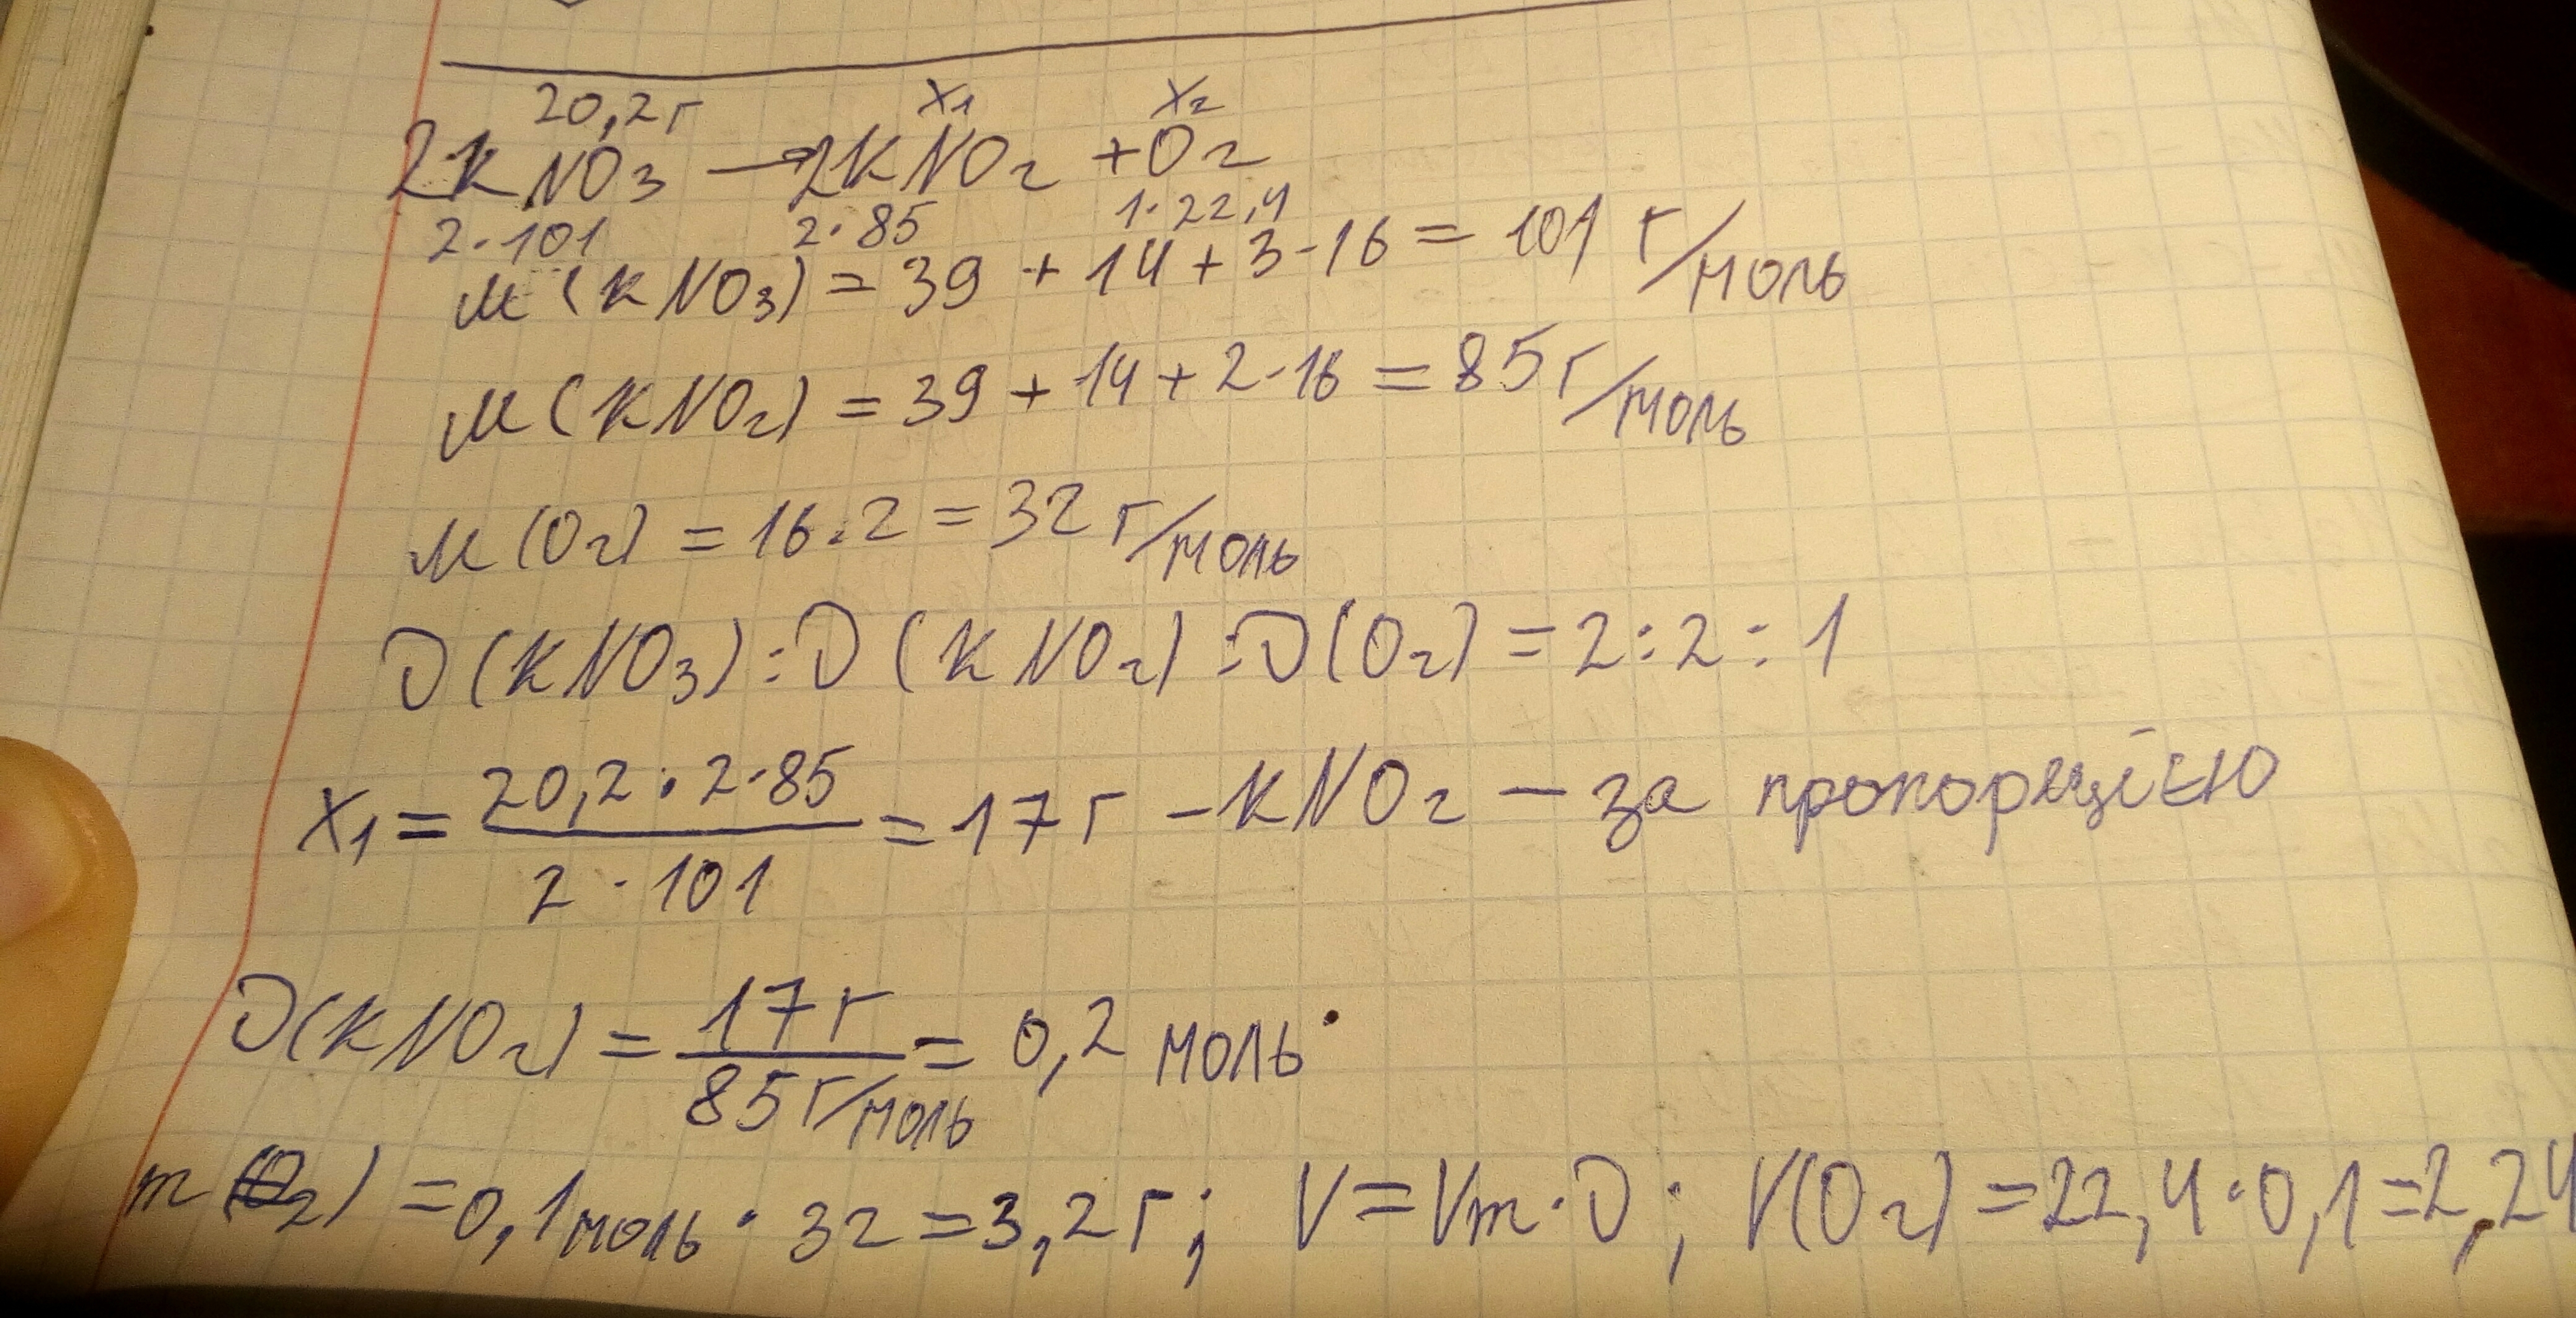 20,2г x₁ x₂
2KNO₃ → 2KNO₂ + O₂
2·101 2·85 1·22,4
M(KNO₃) = 39 + 14 + 3·16 = 101 г/моль
M(KNO₂) = 39 + 14 + 2·16 = 85 г/моль
M(O₂) = 16·2 = 32 г/моль
ν(KNO₃) : ν(KNO₂) : ν(O₂) = 2 : 2 : 1
x₁ = 20,2·2·85 / 2·101 = 17 г - KNO₂ - за пропорцією
ν(KNO₂) = 17 г / 85 г/моль = 0,2 моль
m(O₂) = 0,1 моль · 32 = 3,2 г; V = Vm·ν; V(O₂) = 22,4·0,1 = 2,24